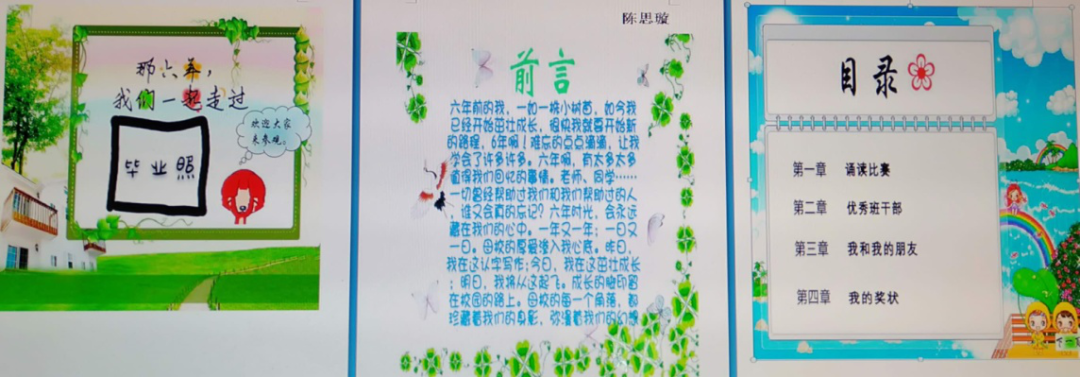 那六年,
我们一起走过
欢迎大家
来参观。
毕业照
陈思璇
前言
六年前的我,一如一株小树苗,如今我
已经开始茁壮成长,很快我就要开始新
的路程,6年啊!难忘的点点滴滴,让我
学会了许多许多。六年啊,有太多太多
值得我们回忆的事情。老师、同学……
一切曾经帮助过我们和我们帮助过的人
,谁又会真的忘记?六年时光,会永远
藏在我们的心中。一年又一年;一日又
一日。母校的厚爱渗入我心底。昨日,
我在这认字写作;今日,我在这茁壮成长
;明日,我将从这起飞。成长的脚印留
在校园的路上。母校的每一个角落,都
珍藏着我们的身影,弥漫着我们的幻想
目录
第一章 诵读比赛
第二章 优秀班干部
第三章 我和我的朋友
第四章 我的奖状